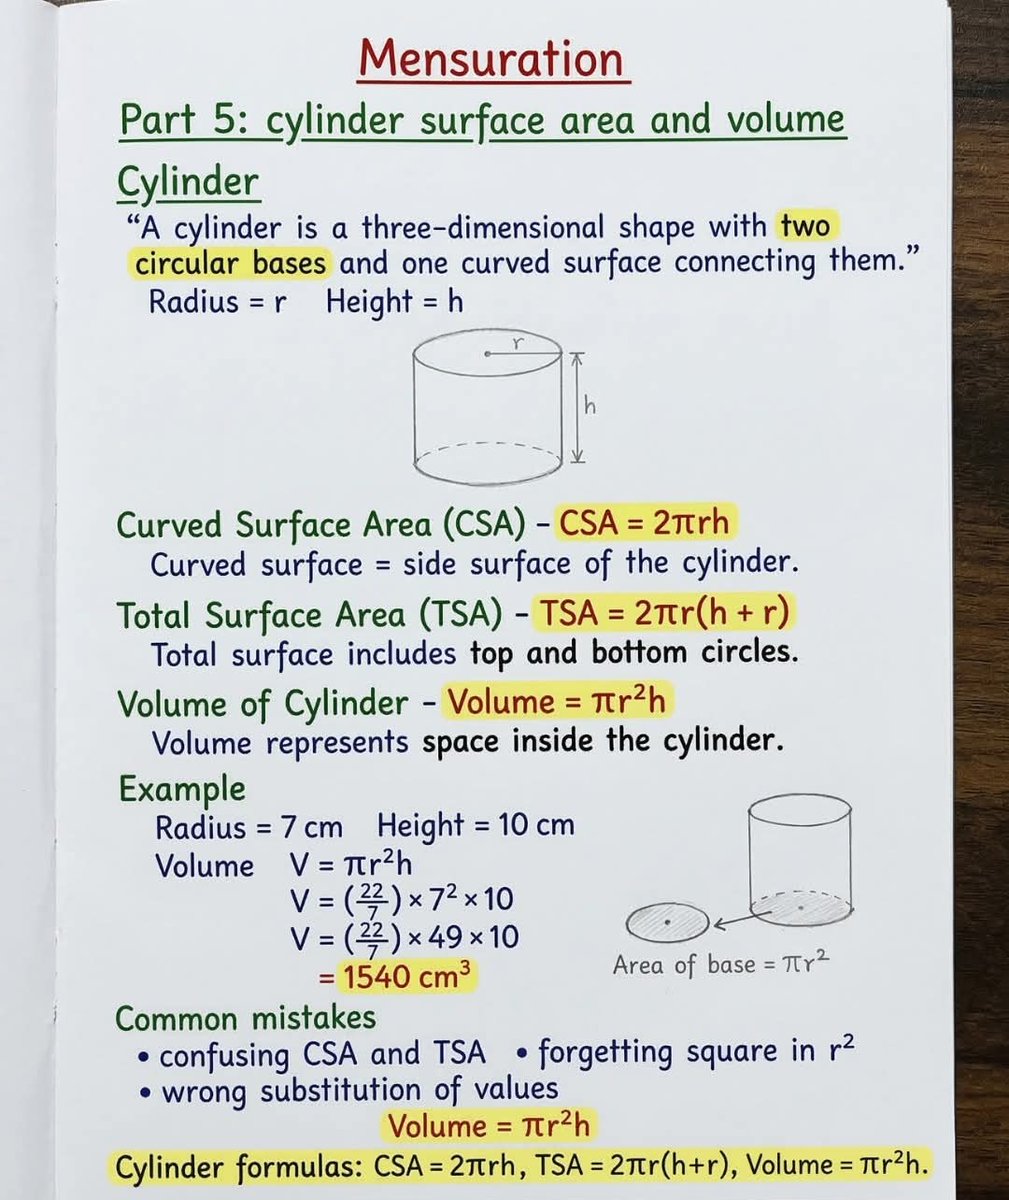 Mensuration
Part 5: cylinder surface area and volume
Cylinder
“A cylinder is a three-dimensional shape with two
circular bases and one curved surface connecting them.”
Radius = r Height = h
r
h
Curved Surface Area (CSA) – CSA = 2πrh
Curved surface = side surface of the cylinder.
Total Surface Area (TSA) – TSA = 2πr(h + r)
Total surface includes top and bottom circles.
Volume of Cylinder – Volume = πr²h
Volume represents space inside the cylinder.
Example
Radius = 7 cm Height = 10 cm
Volume V = πr²h
V = (22/7) × 7² × 10
V = (22/7) × 49 × 10
= 1540 cm³
Area of base = πr²
Common mistakes
• confusing CSA and TSA • forgetting square in r²
• wrong substitution of values
Volume = πr²h
Cylinder formulas: CSA = 2πrh, TSA = 2πr(h+r), Volume = πr²h.